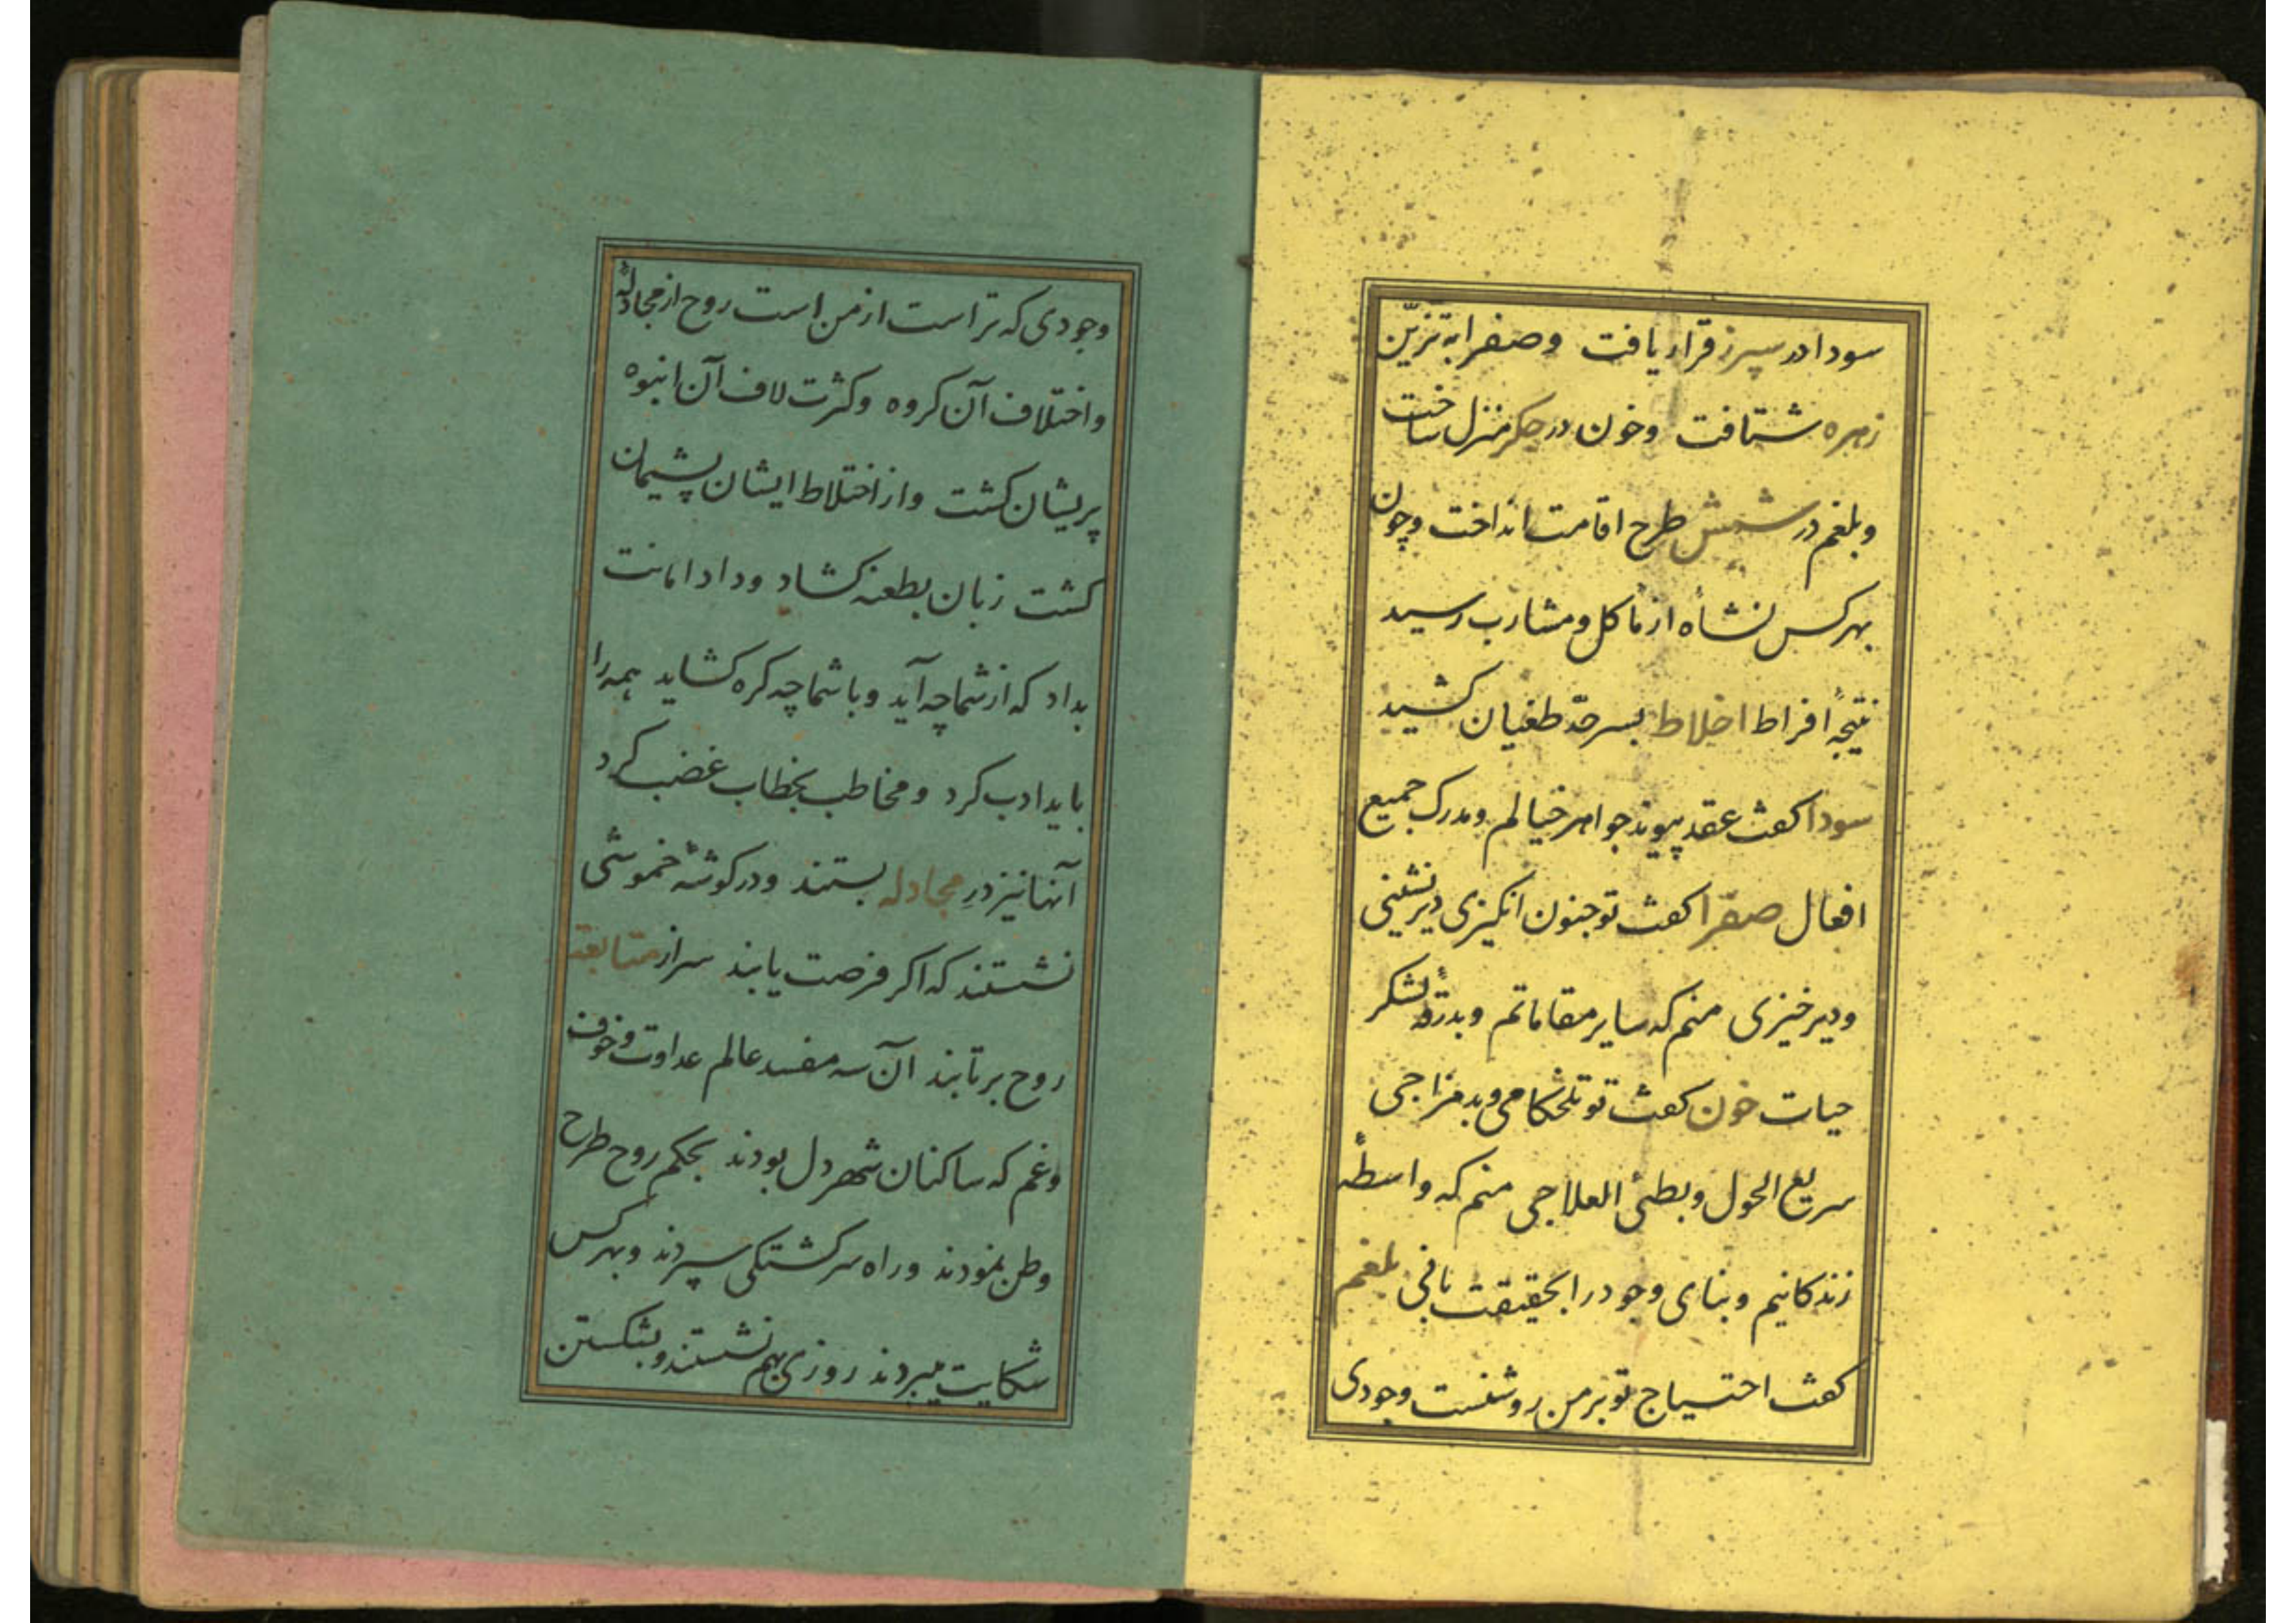 سودا در سپرز قرار یافت و صفرا به تزیّن
زهره شتافت و خون در جکر منزل ساخت
و بلغم در شش طرح اقامت انداخت و چون
بهر کس نشاه از مأکل و مشارب رسید
نتیجهٔ افراط اخلاط بسر حدّ طغیان کشید
سودا کفت عقد پیوند جواهر خیالم و مدرک جمیع
افعال صفرا کفت تو جنون انکیزی دیرنشینی
و دیرخیزی منم که سایر مقاماتم و بدرقهٔ لشکر
حیات خون کفت تو تلخکامی و بدمزاجی
سریع الحول و بطئ العلاجی منم که واسطهٔ
زندکانیم و بنای وجود را بحقیقت بانی بلغم
کفت احتیاج تو بر من روشنست وجودی
وجودی که تراست از من است روح از مجادلهٔ
و اختلاف آن کروه و کثرت لاف آن انبوه
پریشان کشت و از اختلاط ایشان پشیمان
کشت زبان بطعنه کشاد و داد امانت
بداد که از شما چه آید و با شما چه کره کشاید همه را
باید ادب کرد و مخاطب بخطاب غضب کرد
آنها نیز درِ مجادله بستند و در کوشهٔ خموشی
نشستند که اکر فرصت یابند سر از متابعة
روح برتابند آن سه مفسد عالم عداوت و خوف
و غم که ساکنان شهر دل بودند بحکم روح طرح
وطن نمودند و راه سرکشتکی سپردند و بهر کس
شکایت میبردند روزی بهم نشستند و بشکستن